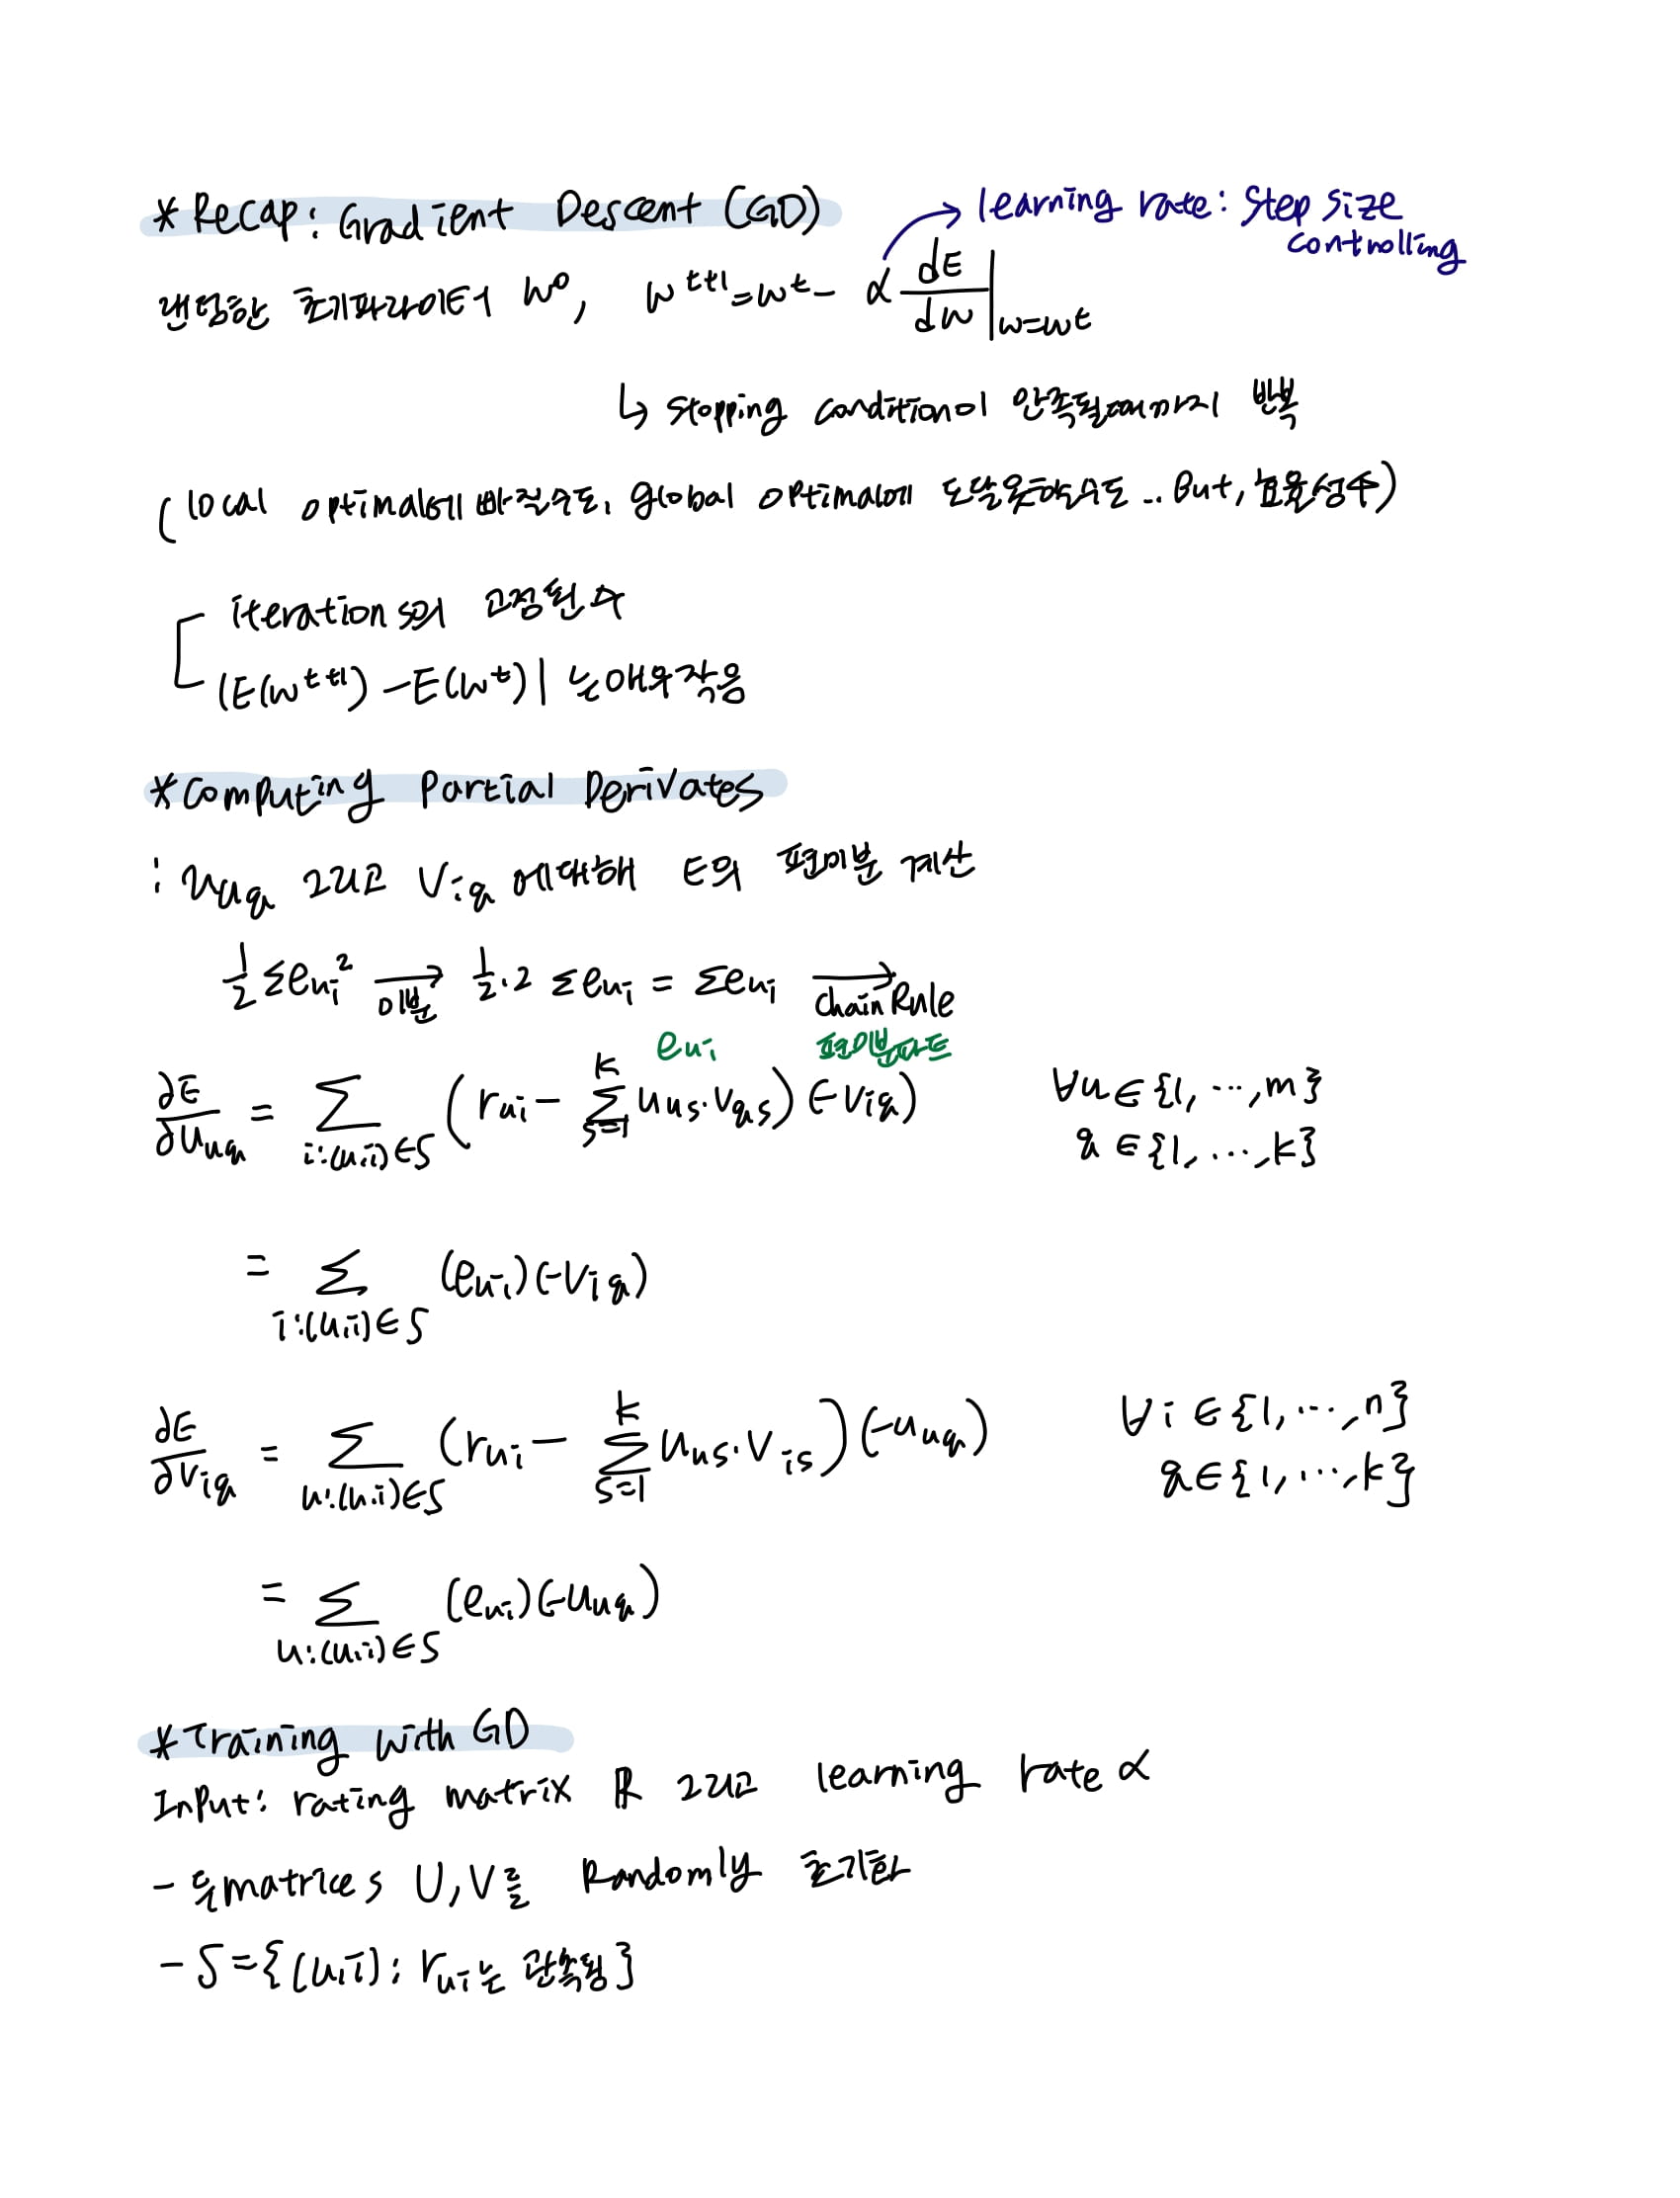 * Recap: Gradient Descent (GD)
learning rate: Step size controlling
랜덤한 초기파라미터 w⁰, w^{t+1} = w^t - α dE/dw |_{w=w^t}
↳ stopping condition이 만족될때까지 반복
(local optimal에 빠질수도, global optimal에 도달못할수도.. But, 효율성추)
iterations의 고정된 수
|E(w^{t+1}) - E(w^t)| 는 매우작음
* Computing Partial Derivates
: u_{uq} 그리고 V_{iq} 에대해 E의 편미분 계산
1/2 Σe_{ui}² →(미분) 1/2·2 Σe_{ui} = Σe_{ui} →(chain Rule)
e_{ui} 편미분파트
∂E/∂U_{uq} = Σ_{i:(u,i)∈S} (r_{ui} - Σ_{s=1}^{k} u_{us}·v_{qs})(-v_{iq}) ∀u∈{1, ..., m}
q∈{1, ..., k}
= Σ_{i:(u,i)∈S} (e_{ui})(-v_{iq})
∂E/∂V_{iq} = Σ_{u:(u,i)∈S} (r_{ui} - Σ_{s=1}^{k} u_{us}·v_{is})(-u_{uq}) ∀i∈{1, ..., n}
q∈{1, ..., k}
= Σ_{u:(u,i)∈S} (e_{ui})(-u_{uq})
* Training with GD
Input: rating matrix R 그리고 learning rate α
- 두matrices U,V를 Randomly 초기화
- S={(u,i): r_{ui}는 관측됨}